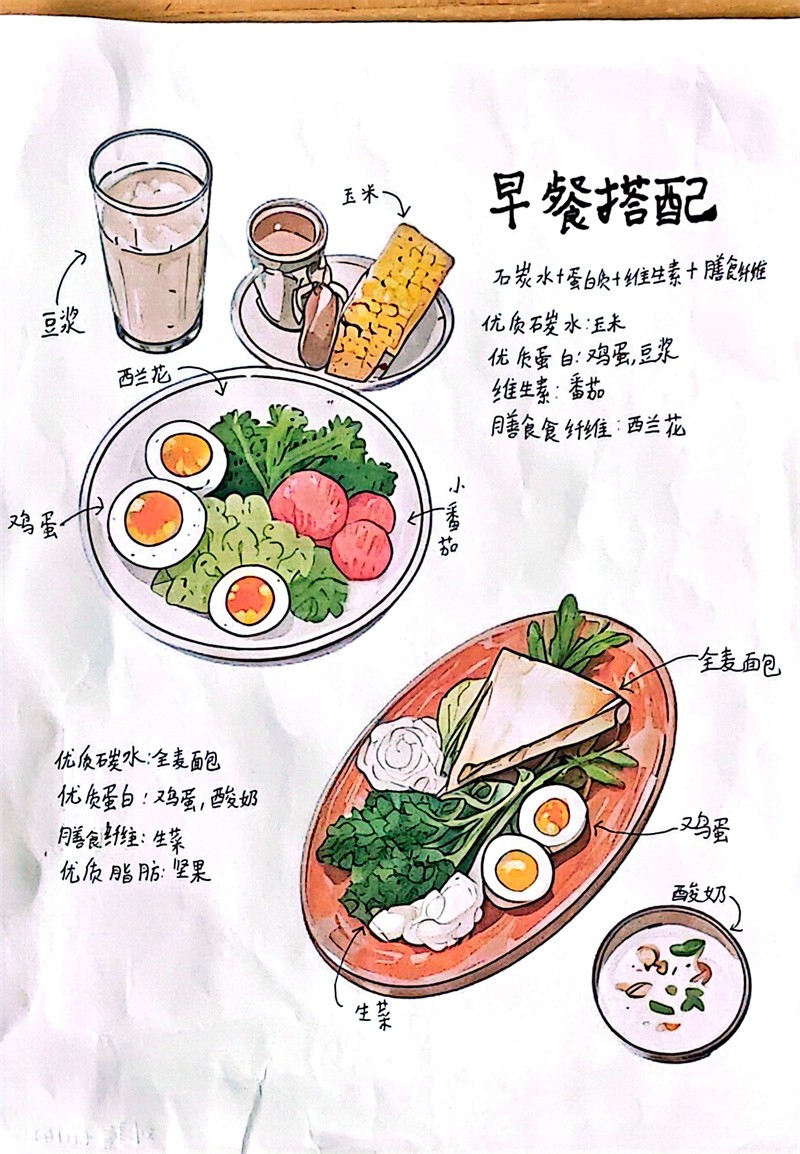 早餐搭配
石炭水+蛋白质+维生素+膳食纤维
优质石炭水:玉米
优质蛋白:鸡蛋,豆浆
维生素:番茄
膳食食纤维:西兰花
玉米
豆浆
西兰花
鸡蛋
小番茄
全麦面包
鸡蛋
酸奶
生菜
优质石炭水:全麦面包
优质蛋白:鸡蛋,酸奶
膳食纤维:生菜
优质脂肪:坚果